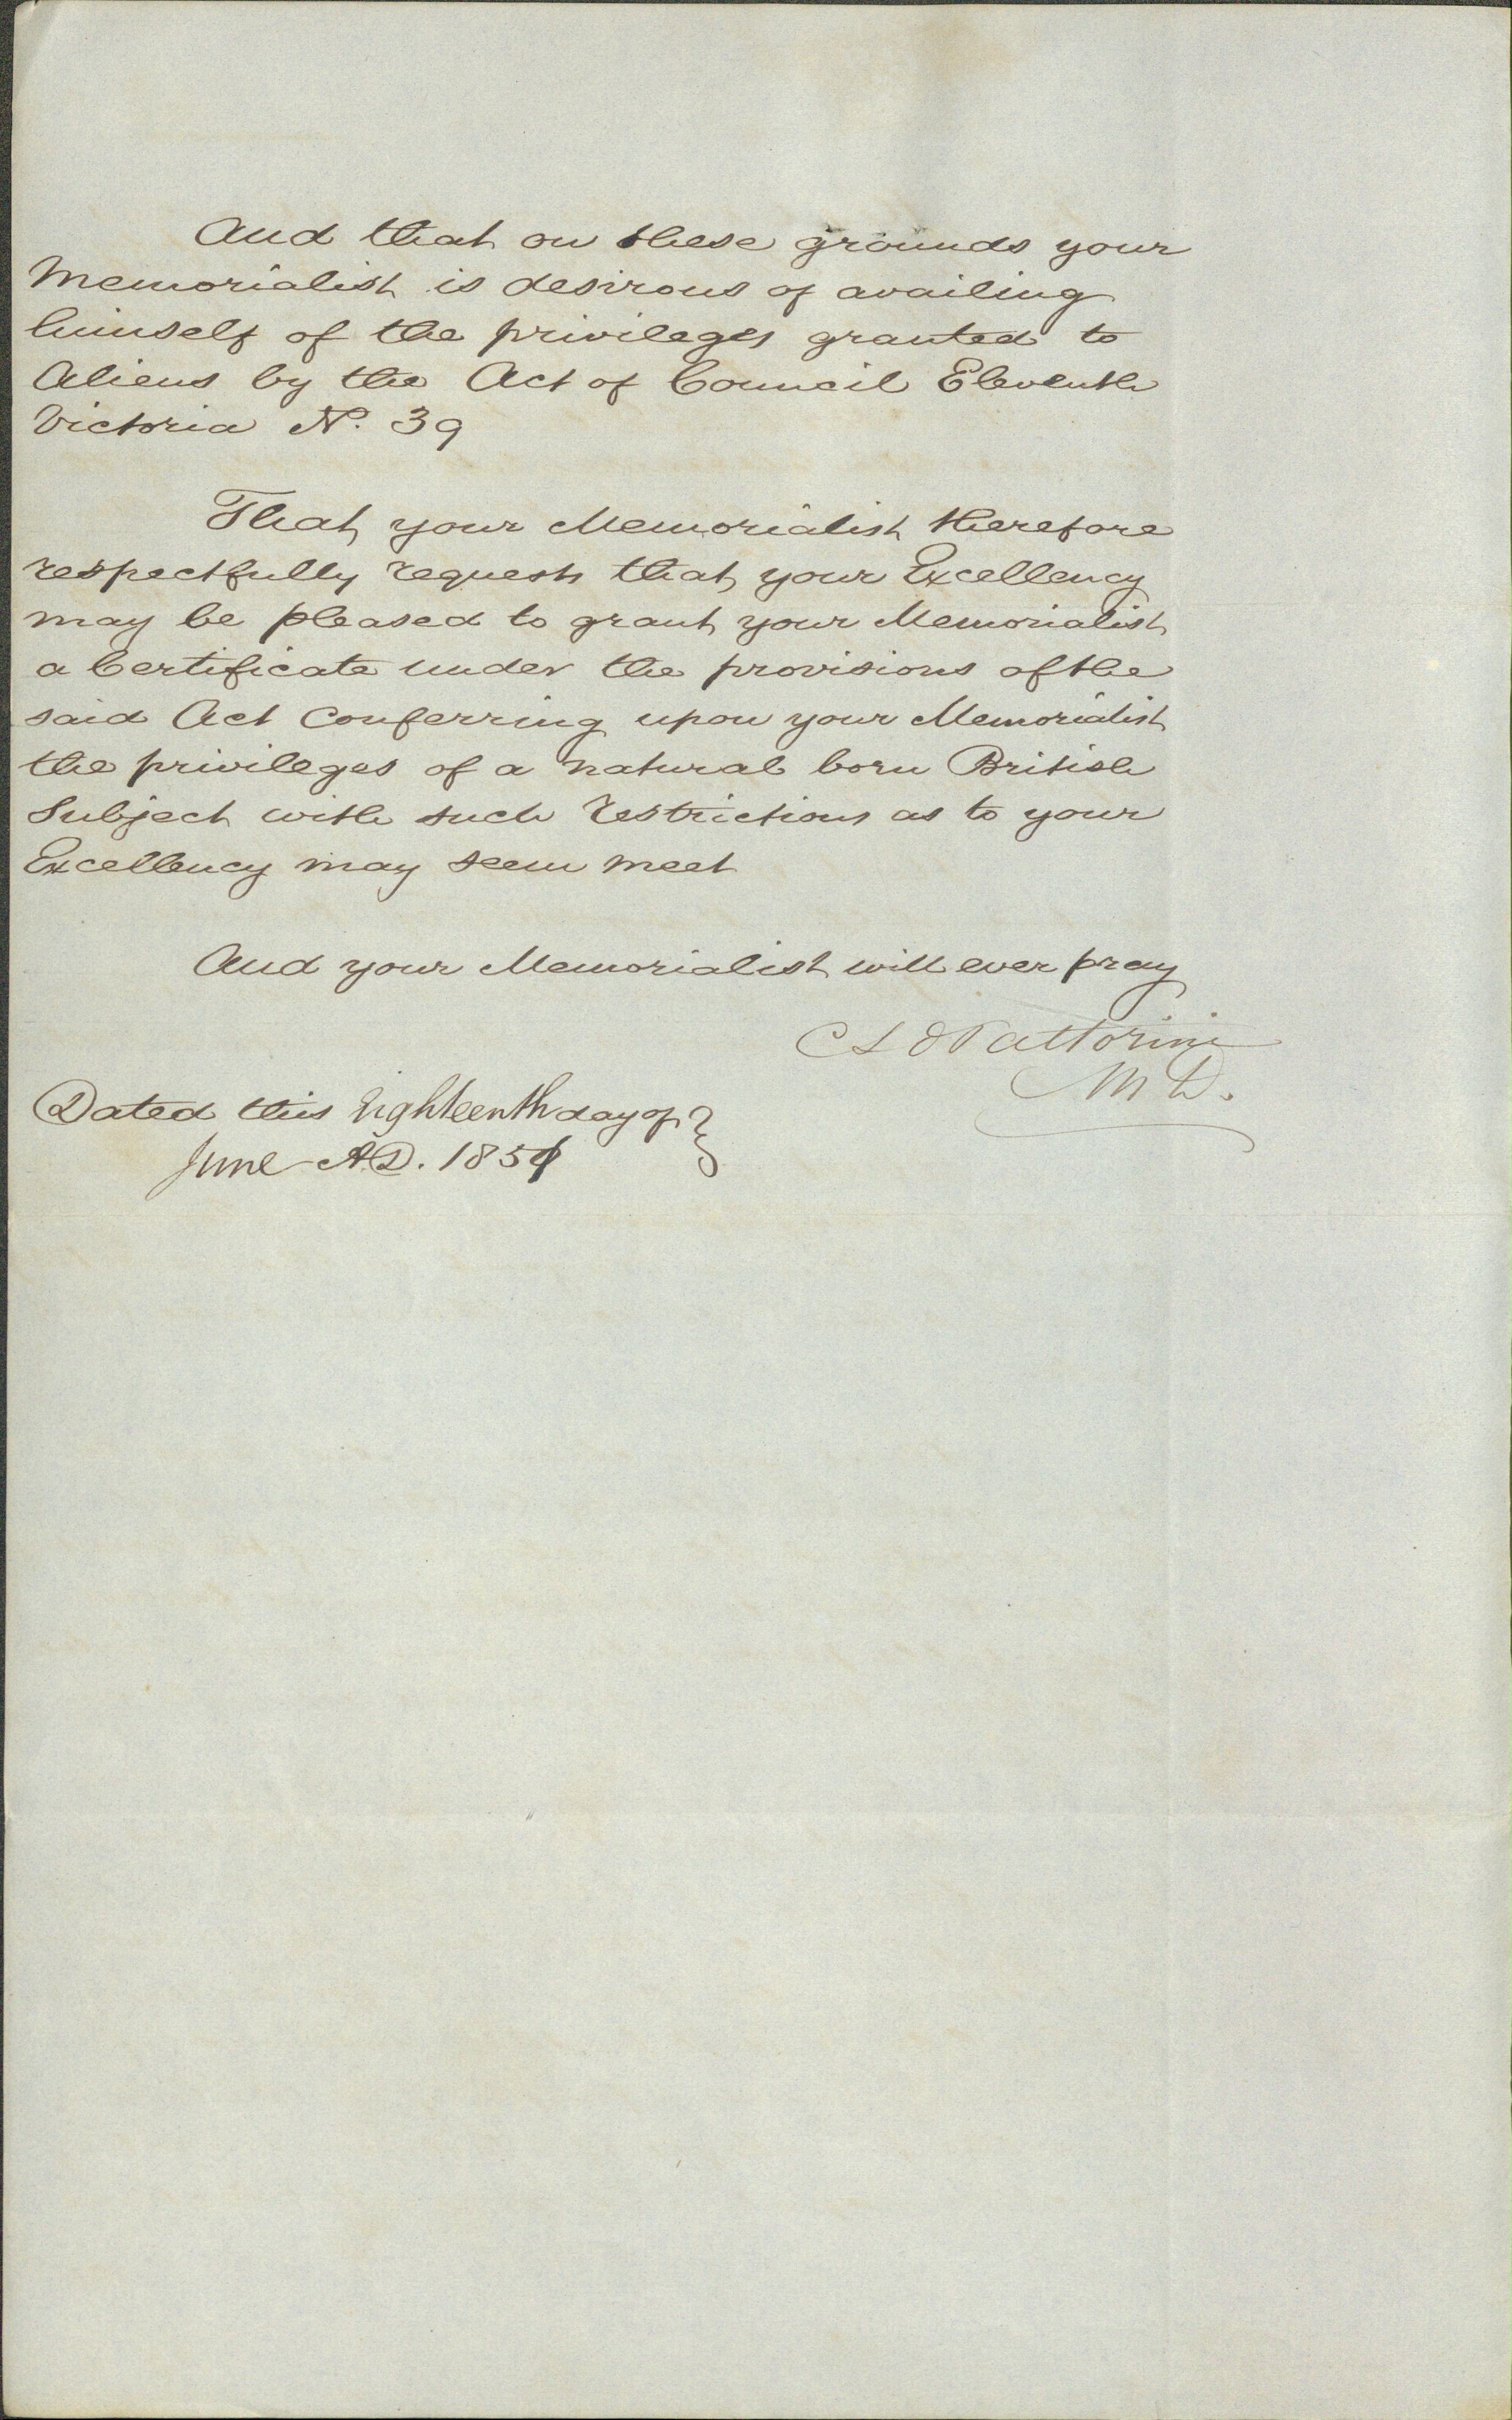 And that on these grounds your
Memorialist is desirous of availing
himself of the privileges granted to
Aliens by the Act of Council Eleventh
Victoria No. 39
That your Memorialist therefore
respectfully requests that your Excellency
may be pleased to grant your Memorialist
a Certificate under the provisions of the
said Act Conferring upon your Memorialist
the privileges of a natural born British
Subject with such restrictions as to your
Excellency may seem meet
And your Memorialist will ever pray
M D.
Dated this Eighteenth day of
June A.D. 185